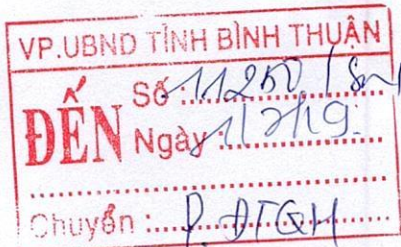 VP.UBND TỈNH BÌNH THUẬN
ĐẾN
Số : 11250
Ngày : 1/7/19
Chuyển : P. ĐTQH